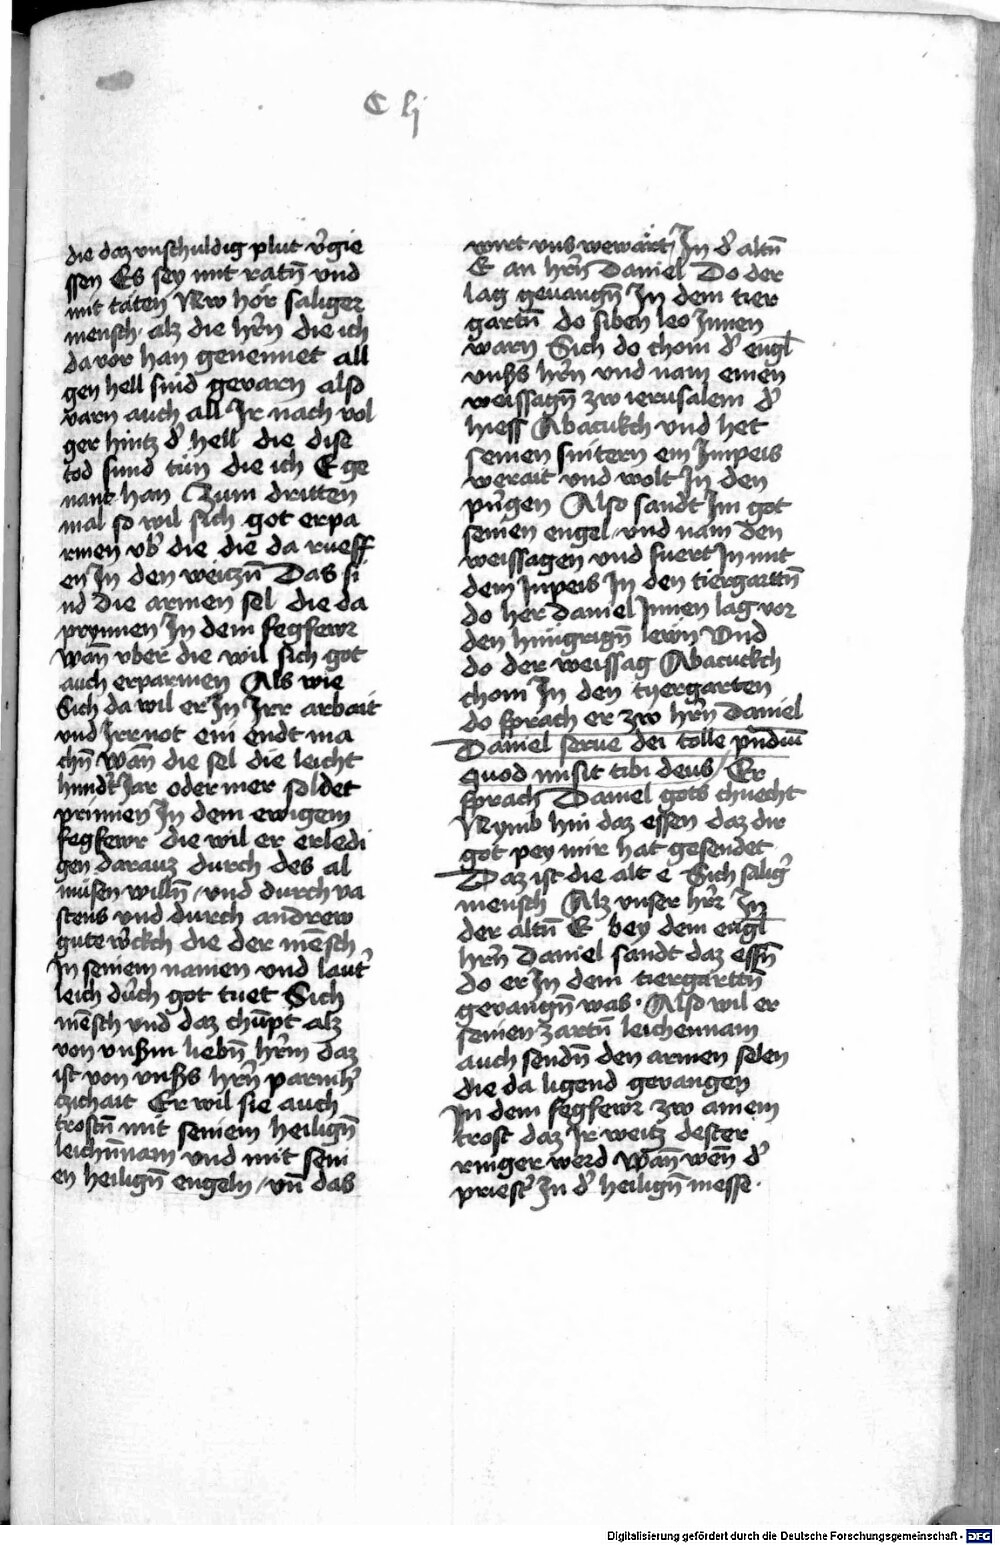 C lj
die daz vnschuldig plut v̉gie
ssen Es sey mit ratn̄ vnd
mit taten Nw hör saliger
mensch · alz die hr̄n die ich
da vor han genennet all
gen hell sind gevarn also
varn auch all Ir nach vol
ger hintz d̉ hell die dise
tod sund tün die ich E ge
nant han Zum dritten
mal so wil sich got erpa
rmen vb̉ die die da rueff
en In den weitzn̄ Das si
nd die armen sel die da
prynnen In dem fegfewr
wan̄ vber die wil sich got
auch erparmen Als wie
Sich da wil er In Irr arbait
vnd Irr not ein endt ma
chn̄ wan̄ die sel die leicht
hundt Jar oder mer soldet
prinnen In dem ewigem
fegfewr die wil er erledi
gen darauz durch des al
musen willn̄ / vnd durch va
stens vnd durch andrew
gute w̉ckch die der mēsch
In seinem namen vnd laut̉
leich durch got tuet Sich
mēsch vnd daz chūpt alz
von vnßm liebn̄ hr̄m daz
ist von vnßs hr̄n parmh̉
tzichait Er wil sie auch
trostn̄ mit seinem heilign̄
leichn̄nam vnd mit sein
en heilign̄ engeln / vn̄ das
wirt vns wewärt / In d̉ altn̄
E an hr̄n Daniel Do der
lag gevangn̄ In dem tier
gartn̄ do siben leo Innen
warn Sich do chom d̉ engl
vnßs hr̄n vnd nam einen
weissagn̄ zw ierusalem d̉
hiess Abacukch vnd het
seinen snitern ein Impeis
werait vnd wolt In den
pringen Also sandt Im got
seinen engel / vnd nam den
weissagen vnd fuert In mit
dem Inpeis In den tiergarttn̄
do her Daniel Innen lag vor
den hungrign̄ lewn Vnd
do der weissag Abacuckch
chom In den tyergarten
do sprach er zw hr̄n Daniel
Daniel serue dei tolle pn̄diū
quod misit tibi deus / Er
sprach Daniel gots chnecht
Nymb hin daz essen daz dir
got pey mir hat gesendet
Daz ist die alt e Sich salig̉
mensch Alz vnser hr̄r In
der altn̄ E bey dem engl
hr̄n Daniel sandt daz essn̄
do er In dem tiergarttn̄
gevangn̄ was · Also wil er
seinen zartn̄ leichennam
auch sendn̄ den armen selen
die da ligend gevangen
In dem fegfewr zw ainem
trost daz Ir weitz dester
ringer werd wan̄ wen̄ d̉
priest̉ In d̉ heilign̄ messe ·
Digitalisierung gefördert durch die Deutsche Forschungsgemeinschaft - DFG